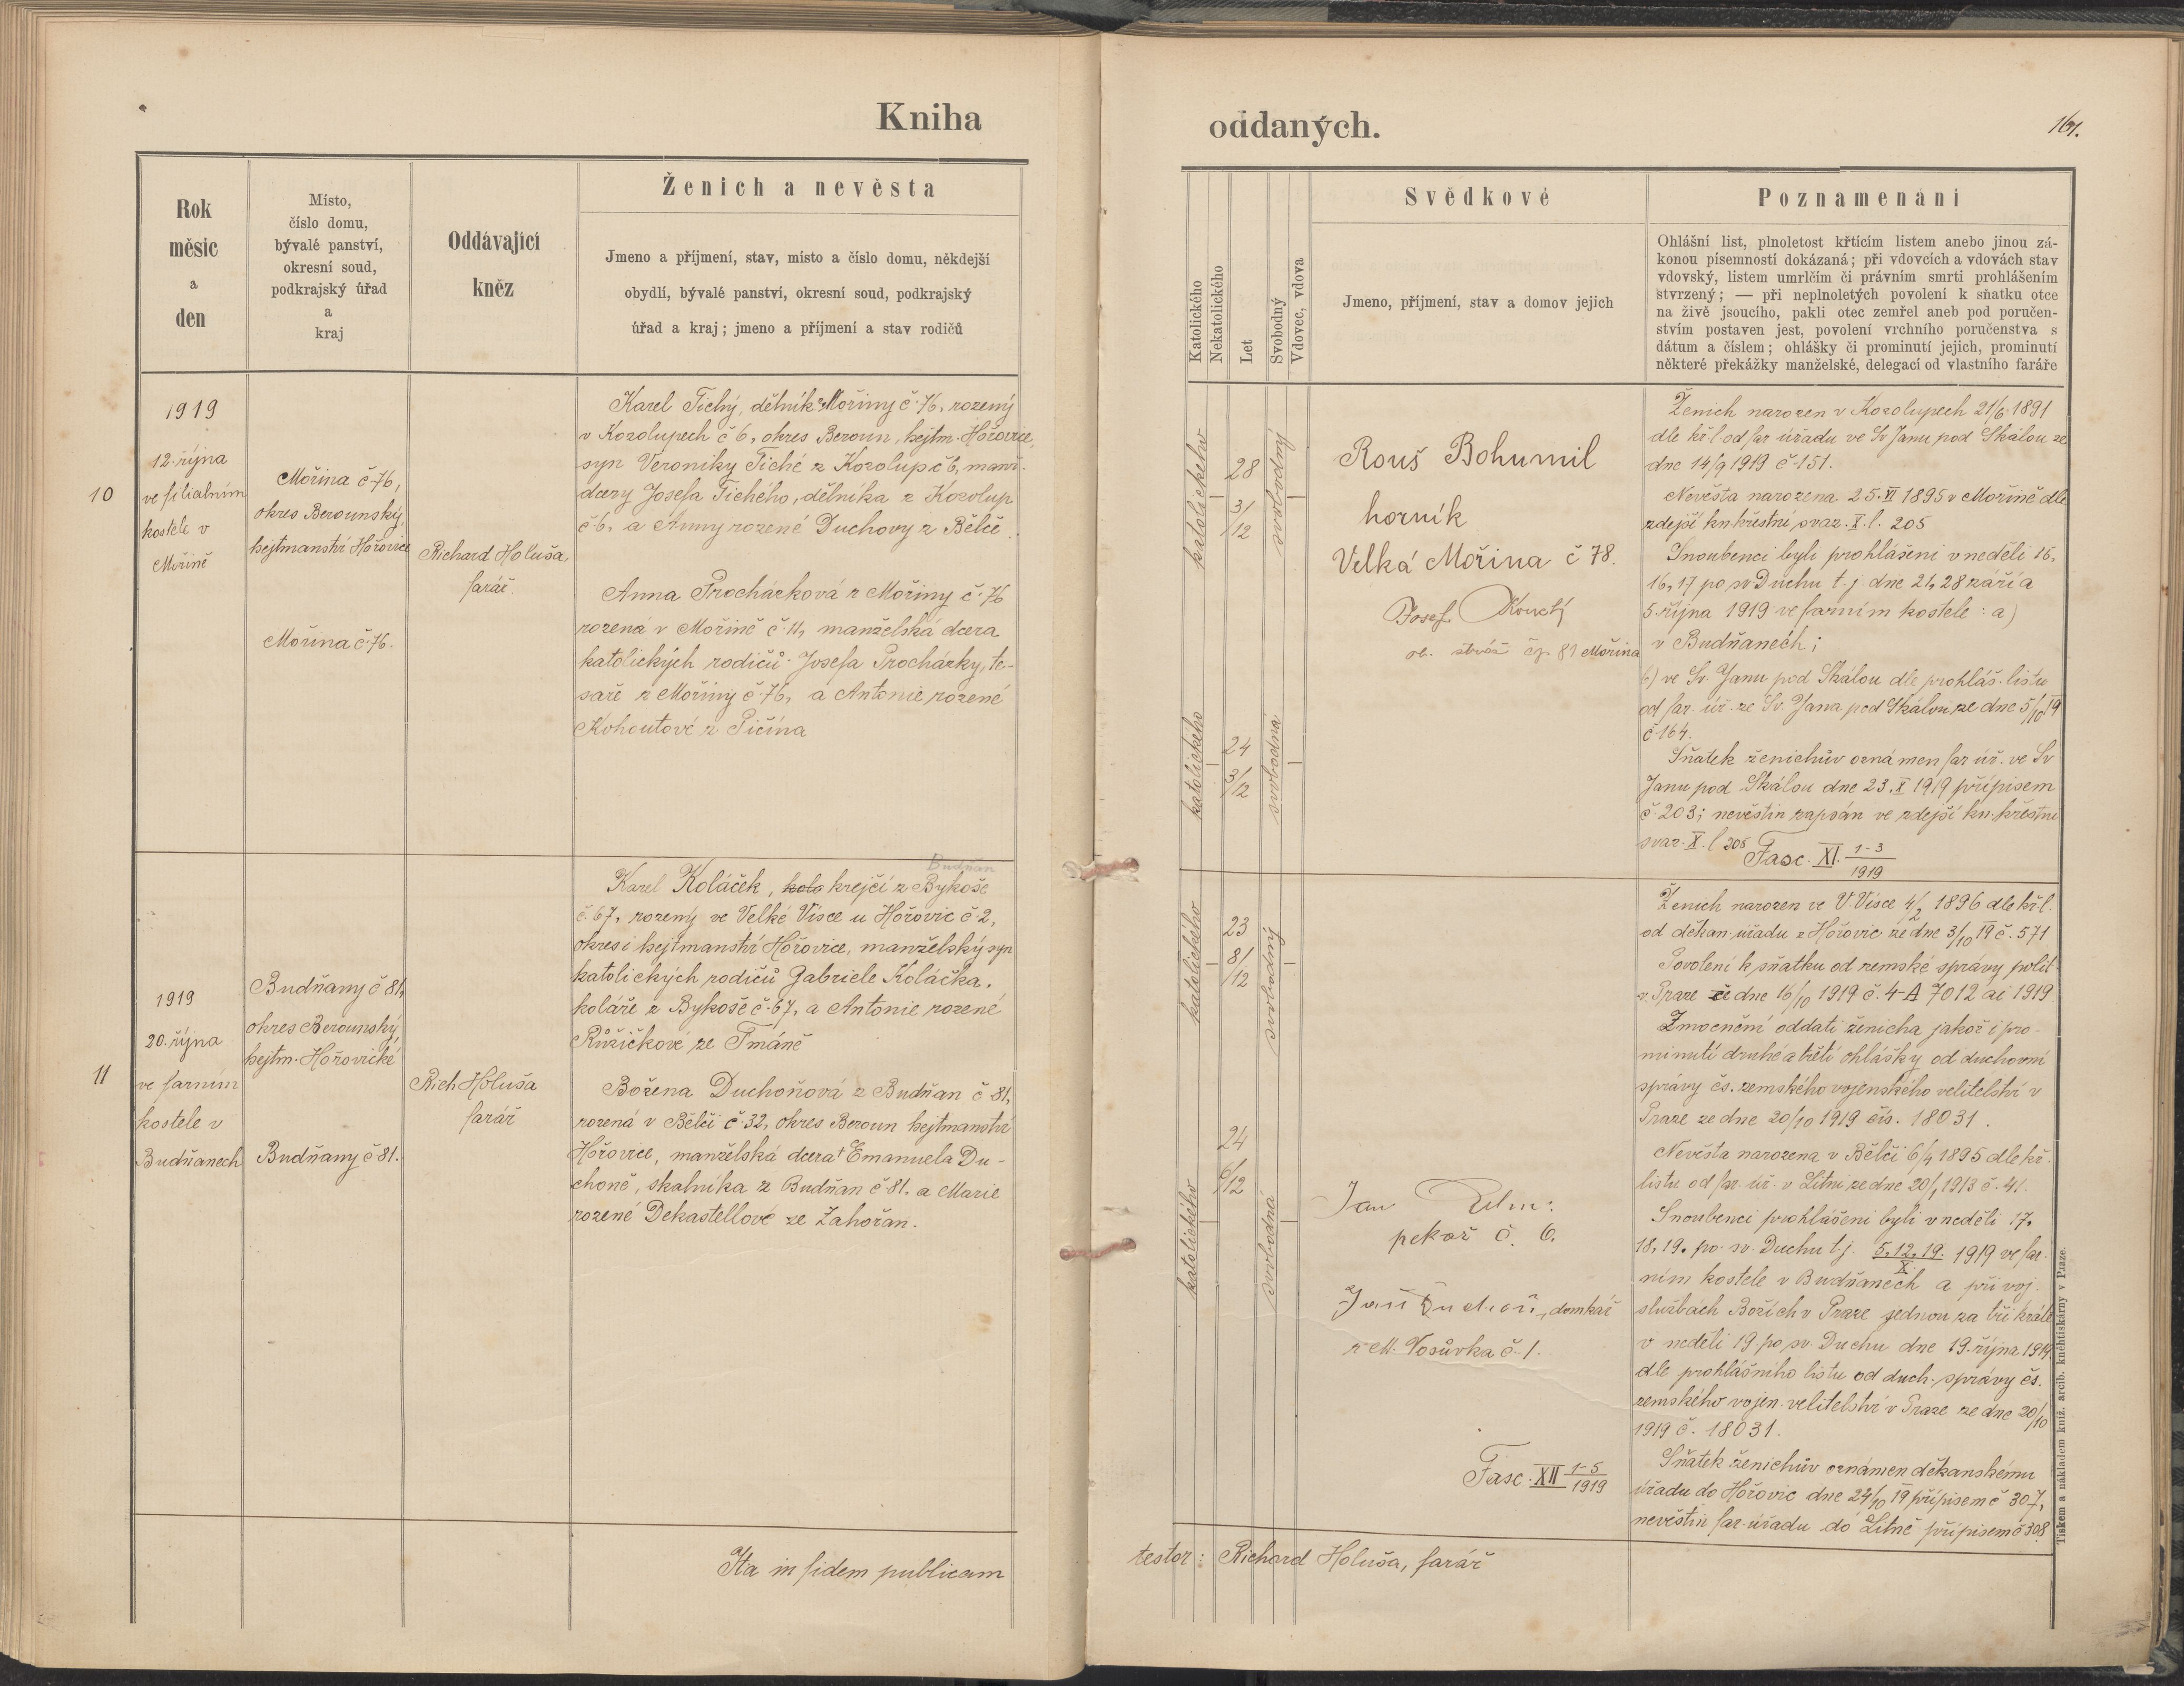 Kniha
oddaných.
161.
Rok
měsíc
a
den
Místo,
číslo domu,
bývalé panství,
okresní soud,
podkrajský úřad
a
kraj
Oddávající
kněz
Ženich a nevěsta
Jmeno a příjmení, stav, místo a číslo domu, někdejší
obydlí, bývalé panství, okresní soud, podkrajský
úřad a kraj; jmeno a příjmení a stav rodičů
Katolického
Nekatolického
Let
Svobodný
Vdovec, vdova
Svědkové
Jmeno, příjmení, stav a domov jejich
Poznamenání
Ohlášní list, plnoletost křticím listem anebo jinou zá-
konou písemností dokázaná; při vdovcích a vdovách stav
vdovský, listem umrlčím či právním smrti prohlášením
stvrzený; — při neplnoletých povolení k sňatku otce
na živě jsoucího, pakli otec zemřel aneb pod poručen-
stvím postaven jest, povolení vrchního poručenstva s
dátum a číslem; ohlášky či prominutí jejich, prominutí
některé překážky manželské, delegací od vlastního faráře
10
1919
12. října
ve filialním
kostele v
Mořině
Mořina č 76,
okres Berounský,
hejtmanství Hořovice
Mořina č. 76.
Richard Holuša,
farář.
Karel Tichý, dělník z Mořiny č. 76, rozený
v Kozolupech č 6, okres Beroun, hejtm. Hořovice,
syn Veroniky Tiché z Kozolup č 6, manž.
dcery Josefa Tichého, dělníka z Kozolup
č 6, a Anny rozené Duchovy z Bělče.
Anna Procházková z Mořiny č. 76
rozená v Mořině č. 11, manželská dcera
katolických rodičů: Josefa Procházky, te-
saře z Mořiny č. 76, a Antonie rozené
Kohoutové z Pičína
katolického
28
3/12
svobodný
katolického
24
3/12
svobodná
Rouš Bohumil
horník
Velká Mořina č 78.
Josef
ob. čp. 81 Mořina
Ženich narozen v Kozolupech 21/6 1891
dle kř. l. od far úřadu ve Sv Janu pod Skalou ze
dne 14/9 1919 č. 151.
Nevěsta narozena 25. XI 1895 v Mořině dle
zdejší kn. křestní svaz. X. l. 205
Snoubenci byli prohlášeni v neděli 15,
16, 17 po sv Duchu t. j. dne 21, 28 září a
5. října 1919 ve farním kostele: a)
v Budňanech;
b) ve Sv. Janu pod Skálou dle prohláš. listu
od far. úř. ze Sv. Jana pod Skálou ze dne 5/10 19
č 164.
Sňatek ženichův oznámen far úř. ve Sv
Janu pod Skálou dne 23. X 1919 přípisem
č. 203; nevěstin zapsán ve zdejší kn. křestní
svaz. X. l 205
Fasc. XI. 1-3/1919
11
1919
20. října
ve farním
kostele v
Budňanech
Budňany č 81,
okres Berounský,
hejtm. Hořovické
Budňany č 81.
Rich Holuša
farář
Budňan
Karel Koláček, kola krejčí z Bykoše
č. 67, rozený ve Velké Vísce u Hořovic č. 2,
okres i hejtmanství Hořovice, manželský syn
katolických rodičů Gabriele Koláčka,
koláře z Bykoše č. 67, a Antonie rozené
Růžičkové ze Tmáně
Božena Duchoňová z Budňan č 81,
rozená v Bělči č. 32, okres Beroun hejtmanství
Hořovice, manželská dcera † Emanuela Du-
choně, skalníka z Budňan č 81. a Marie
rozené Dekastellové ze Zahořan.
katolického
23
8/12
svobodný
katolického
24
6/12
svobodná
Jan
pekař č. 6.
Jan Duchoň, domkář
z M. Vosůvka č. 1.
Fasc. XII 1-5/1919
Ženich narozen ve V. Vísce 4/2 1896 dle kř. l.
od děkan. úřadu z Hořovic ze dne 3/10 19 č. 571
Povolení k sňatku od zemské správy polit.
v Praze ze dne 16/10 1919 č. 4-A 7012 ai 1919
Zmocnění oddati ženicha jakož i pro-
minutí druhé a třetí ohlášky od duchovní
správy čs. zemského vojenského velitelství v
Praze ze dne 20/10 1919 čís. 18031.
Nevěsta narozena v Bělči 6/4 1895 dle kř.
listu od far. úř. v Litni ze dne 20/1 1913 č. 41.
Snoubenci prohlášeni byli v neděli 17,
18, 19. po sv. Duchu t. j. 5. 12. 19. X 1919 ve far-
ním kostele v Budňanech a při voj.
službách Božích v Praze jednou za tři krát
v neděli 19. po sv. Duchu dne 19. října 1919
dle prohlášního listu od duch. správy čs.
zemského vojen. velitelství v Praze ze dne 20/10
1919 č. 18031.
Sňatek ženichův oznámen děkanskému
úřadu do Hořovic dne 24/10 19 přípisem č 307,
nevěstin far. úřadu do Litně přípisem č 308
Ita in fidem publicam
testor: Richard Holuša, farář
Tiskem a nákladem kníž. arcib. knihtiskárny v Praze.